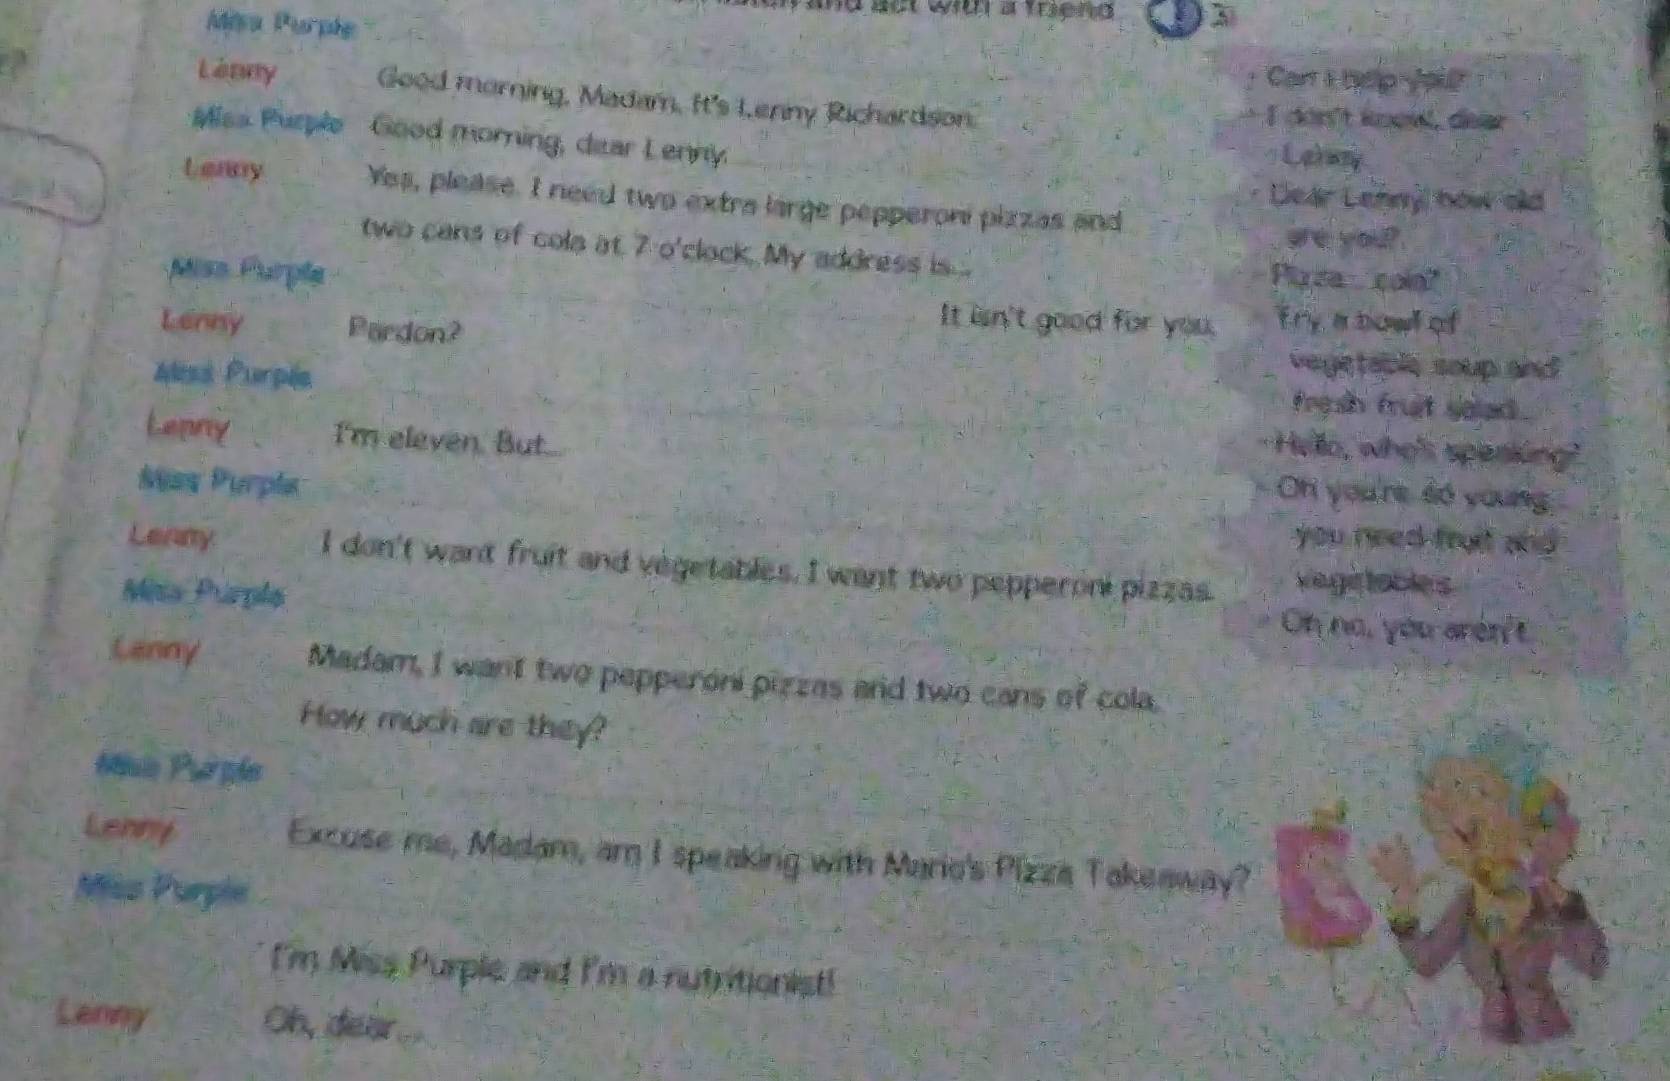 and act with a friend 3
Miss Purple
Lenny Good morning, Madam. It's Lenny Richardson.
Miss Purple Good morning, dear Lenny.
Lenny Yes, please. I need two extra large pepperoni pizzas and
two cans of cola at 7 o'clock. My address is...
Miss Purple It isn't good for you.
Lenny Pardon?
Miss Purple
Lenny I'm eleven. But...
Miss Purple
Lenny I don't want fruit and vegetables. I want two pepperoni pizzas.
Miss Purple
Lenny Madam, I want two pepperoni pizzas and two cans of cola.
How much are they?
Miss Purple
Lenny Excuse me, Madam, am I speaking with Mario's Pizza Takeaway?
Miss Purple
I'm Miss Purple and I'm a nutritionist!
Lenny Oh, dear...
Can I help you?
I don't know, dear
Lenny
Dear Lenny, how old
are you?
Pizza... cola?
Try a bowl of
vegetable soup and
fresh fruit salad.
Hello, who's speaking?
Oh you're so young,
you need fruit and
vegetables.
Oh no, you aren't.